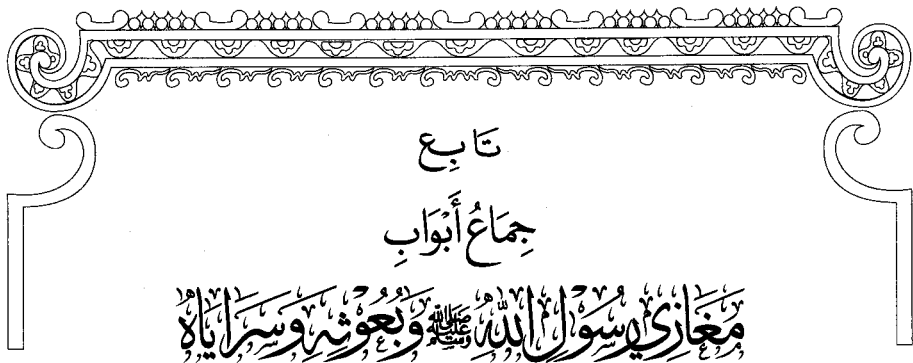 تَابِع
جِمَاعُ أَبْوَابِ
مَغَازِي رَسُولِ اللهِ ﷺ وَبُعُوثِهِ وَسَرَايَاهُ